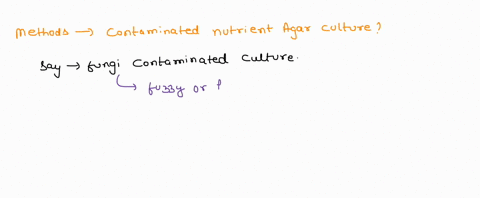 Methods → Contaminated nutrient Agar culture?
Say → fungi contaminated culture.
↳ fuzzy or